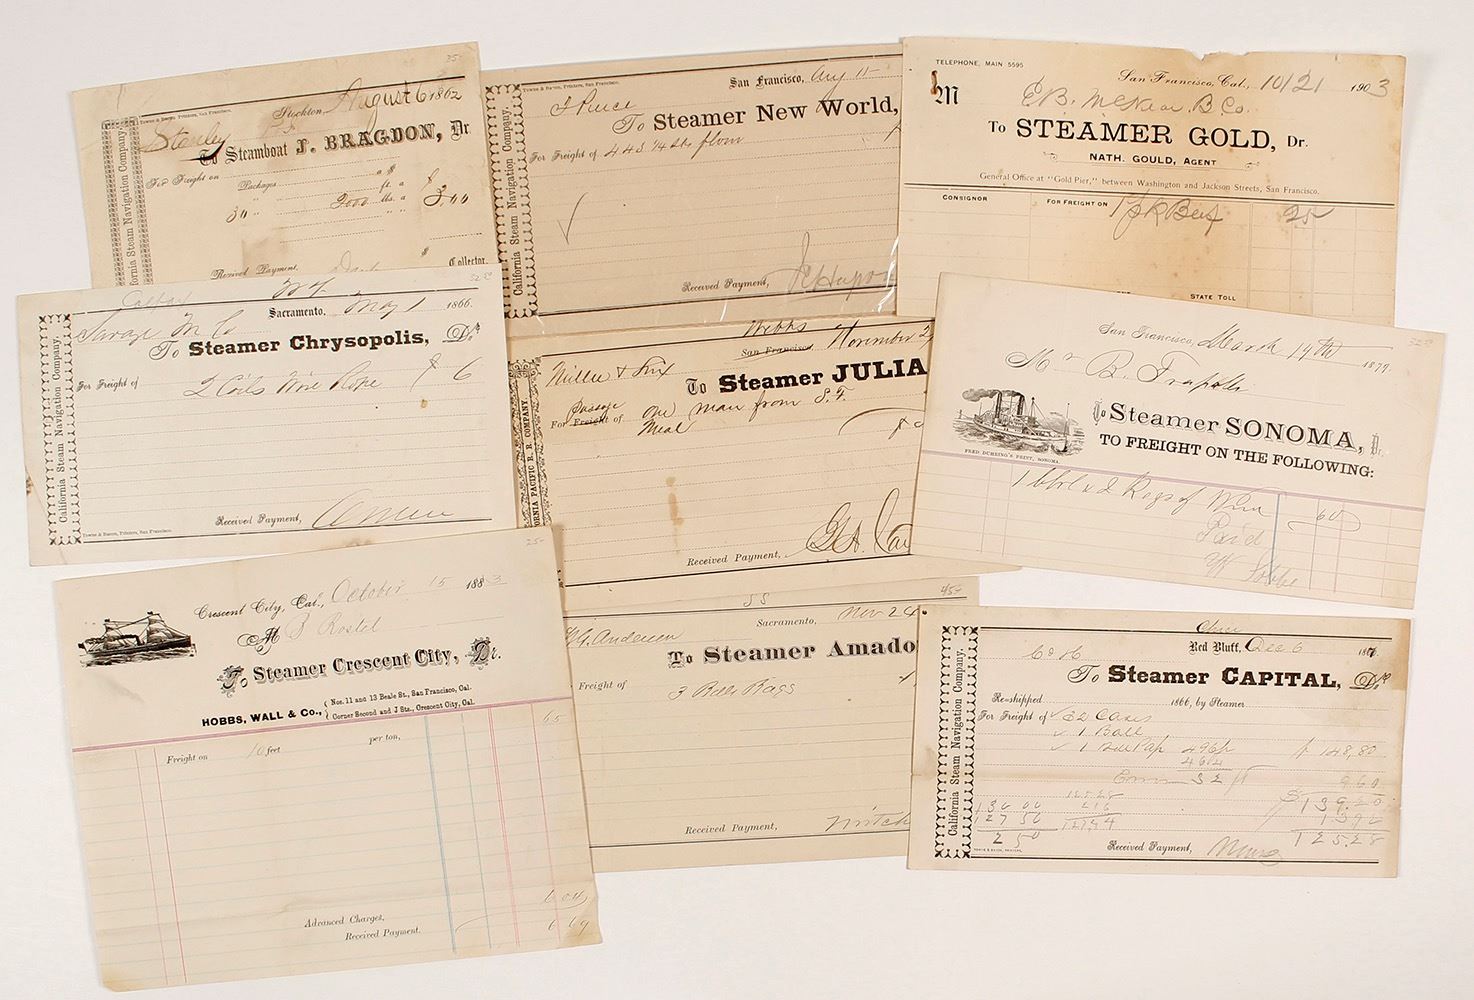 Towne & Bacon, Printers, San Francisco.
Stockton, August 6 1862
Stanley
To Steamboat J. BRAGDON, Dr
For Freight on
Packages a $
ft. a
30 " 2000 lbs. a $ 3 00
Received Payment,
Collector.
California Steam Navigation Company.
Towne & Bacon, Printers, San Francisco.
San Francisco, Aug 11
J Pierce
To Steamer New World,
For Freight of 443 74 sks flour
Received Payment,
California Steam Navigation Company.
TELEPHONE, MAIN 5595
San Francisco, Cal., 10/21 1903
M
To STEAMER GOLD, Dr.
NATH. GOULD, AGENT
General Office at "Gold Pier," between Washington and Jackson Streets, San Francisco.
CONSIGNOR FOR FREIGHT ON 1 sk Beef 25
STATE TOLL
Sacramento, May 1 1866.
Savage M Co
To Steamer Chrysopolis, Dr.
For Freight of 2 Coils Wire Rope $ 6
Received Payment,
Towne & Bacon, Printers, San Francisco.
California Steam Navigation Company.
Webbs
San Francisco November 2
To Steamer JULIA
Passage
For Freight of One man from S.F.
Meal
Received Payment,
CALIFORNIA PACIFIC R. R. COMPANY.
32.50
San Francisco, March 19th 1877.
Mr B. Trapoli
To Steamer SONOMA, Dr.
TO FREIGHT ON THE FOLLOWING:
FRED DUHRING'S PRINT, SONOMA.
1 bbl & 2 Kegs of Wine 60
Paid
25-
Crescent City, Cal., October 15 1883
M B Rostel
To Steamer Crescent City, Dr.
HOBBS, WALL & Co., { Nos. 11 and 13 Beale St., San Francisco, Cal.
Corner Second and J Sts., Crescent City, Cal.
65
Freight on 10 feet per ton,
6 04
Advanced Charges,
Received Payment. 6 69
SS
45-
Sacramento, Nov 24
Anderson
To Steamer Amado
Freight of 3 Bales Bags
Received Payment,
Red Bluff, Dec 6
To Steamer CAPITAL, Dr.
Re-shipped 1866, by Steamer
For Freight of 32 Cases
1 Ball
$ 148,80
9 60
$ 139.20
13 92
125.28
130 00
127 50
2 50
Received Payment,
TOWNE & BACON, PRINTERS.
California Steam Navigation Company.